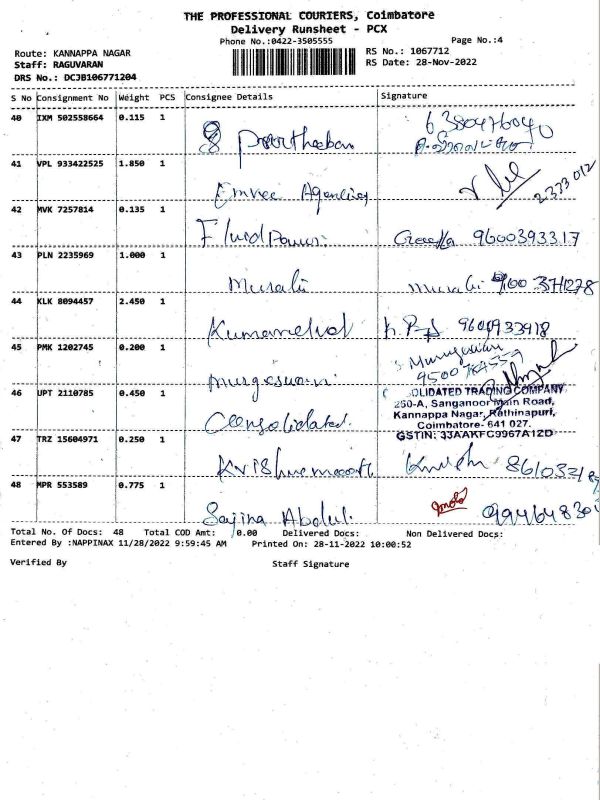 THE PROFESSIONAL COURIERS, Coimbatore
Delivery Runsheet - PCX
Phone No.:0422-3505555
Page No.:4
Route: KANNAPPA NAGAR
RS No.: 1067712
Staff: RAGUVARAN
RS Date: 28-Nov-2022
DRS No.: DCJB106771204
S No Consignment No Weight PCS Consignee Details Signature
40 IXM 502558664 0.115 1
41 VPL 933422525 1.850 1
Agencies
2373012
42 MVK 7257814 0.135 1
Fluid Power
9600393317
43 PLN 2235969 1.000 1
Murali
Murali 9600 371278
44 KLK 8094457 2.450 1
9600933918
45 PMK 1202745 0.200 1
Murugesan
46 UPT 2110785 0.450 1
Consolidated
OLIDATED TRADING COMPANY
260-A, Sanganoor Main Road,
Kannappa Nagar, Rathinapuri,
Coimbatore- 641 027.
GSTIN: 33AAKFC9967A1ZD
47 TRZ 15604971 0.250 1
Krishnamoorthi
48 MPR 553589 0.775 1
Sajina Abdul
Total No. Of Docs: 48 Total COD Amt: 0.00 Delivered Docs: Non Delivered Docs:
Entered By :NAPPINAX 11/28/2022 9:59:45 AM Printed On: 28-11-2022 10:00:52
Verified By Staff Signature